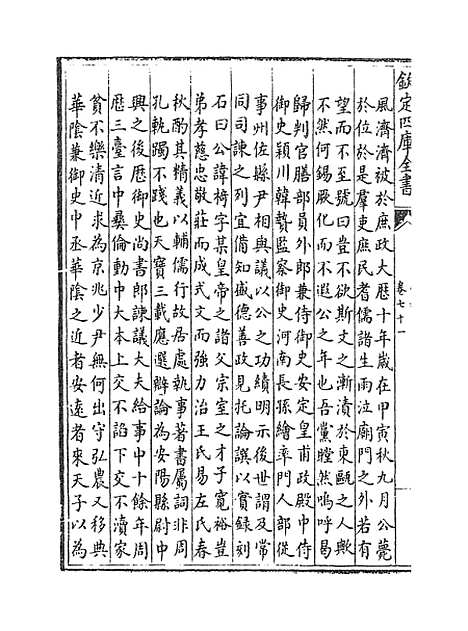 欽定四庫全書
卷七十一
風濟濟被於庶政大厯十年歲在甲寅秋九月公薨
於位於是羣吏庶民耆儒諸生雨泣廟門之外若有
望而不至號曰豈不欲斯文之漸漬於東甌之人歟
不然何錫厥化而不遐公之年也吾黨瞠然嗚呼易
歸判官膳部員外郎兼侍御史安定皇甫政殿中侍
御史潁川韓贄監察御史河南長孫繪率門人部從
事州佐縣尹相與議以公之功績明示後世謂及常
同司諫之列宜備知盛德善政見托論譔以實錄刻
石曰公諱椅字某皇帝之諸父宗室之才子寬裕豈
弟孝慈忠敬莊而成式文而強力治王氏易左氏春
秋酌其精義以輔儒行故居處執事著書屬詞非周
孔軌躅不踐也天寶三載應選辭論為安陽縣尉中
興之後歴御史尚書郎諫議大夫給事中十餘年周
厯三臺言中彞倫動中大本上交不諂下交不瀆家
貧不樂清近求為京兆少尹無何出守弘農又移典
華陰兼御史中丞華陰之近者安遠者來天子以為